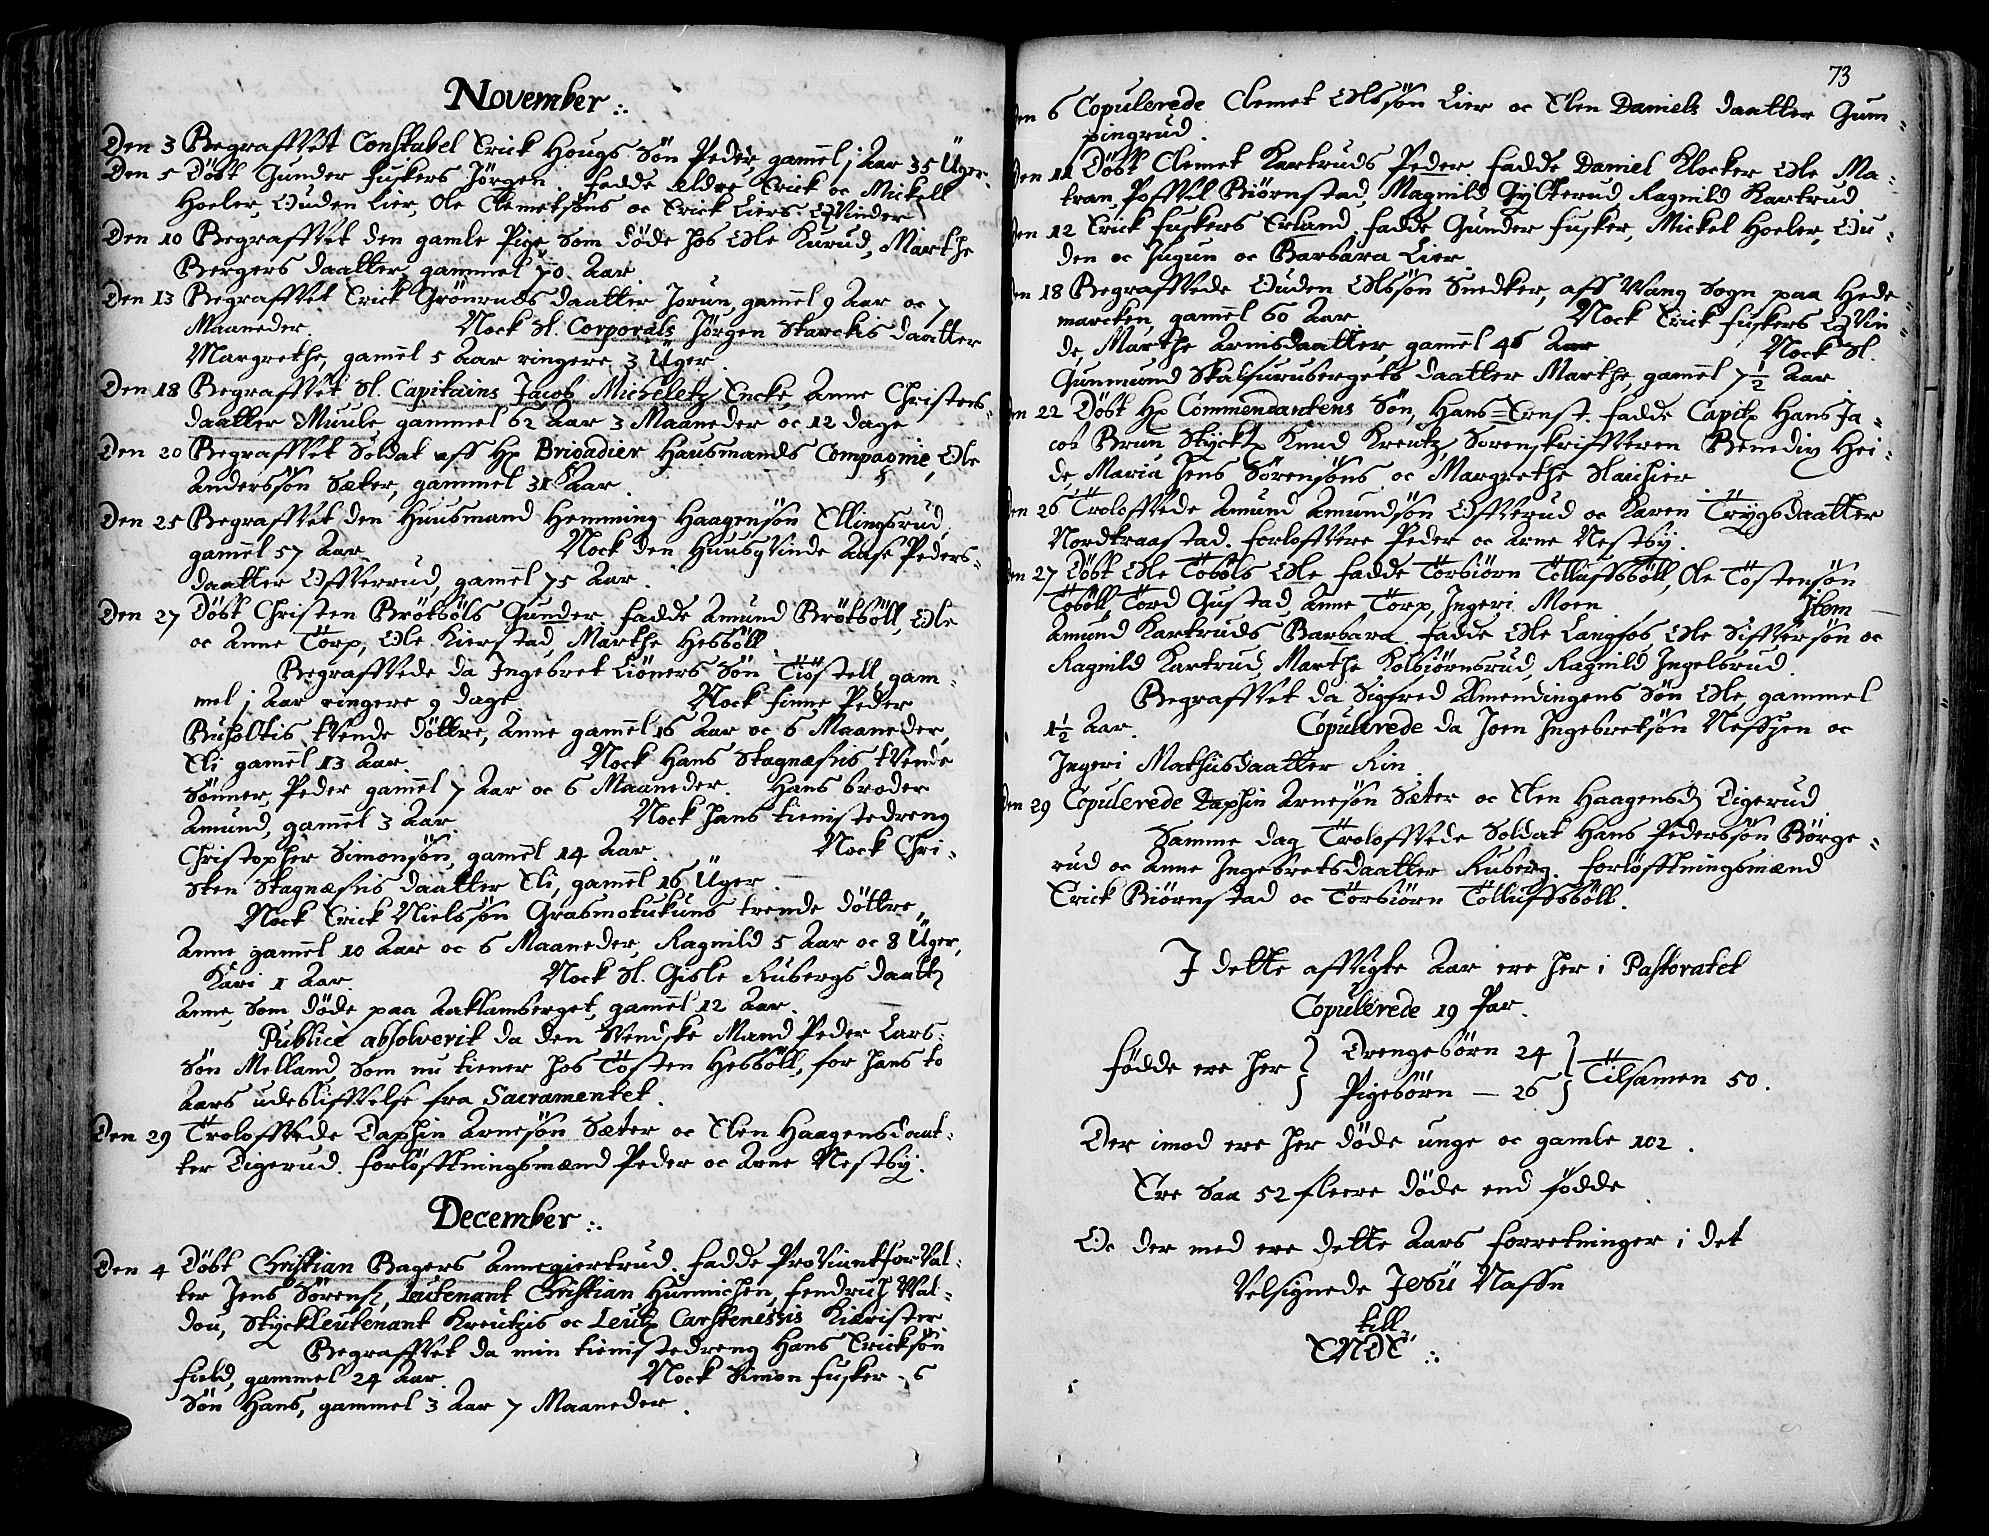 November.
Den 3 Begraffvet Constabel Erick Hougs Søn Peder gamel j Aar 35 Uger.
Den 5 Døbt Gunder Fuskers Jørgen. Fadde Eldre Erick oc Mickell
Hoeler, Ouden Lier, Ole Clemetsøns oc Erick Liers Qvinder
Den 10 Begraffvet den gamle Pige som døde hos Ole Kurud, Marthe
Bergers daatter, gammel 70 Aar
Den 13 Begraffvet Erick Grønruds daatter Jorun, gamel 9 Aar oc 7
Maaneder. Nock Sl. Corporals Jørgen Starckis daatter
Margrethe, gamel 5 Aar ringere 3 Uger.
Den 18 Begraffvet Sl. Capitains Jacob Micheletz Encke, Anne Christens-
daatter Muule, gammel 62 Aar 3 Maaneder oc 12 dage
Den 20 Begraffvet Soldat aff Hr Brigadier Hausmands Compagnie, Ole
Anderssøn Sæter, gammel 31 Aar.
Den 25 Begraffvet den Huusmand Hemming Haagensøn Ellingsrud
gamel 57 Aar. Nock den Huusqvinde Aase Peders-
daatter Offverrud, gamel 75 Aar.
Den 27 Døbt Christen Brøtbøls Gunder. Fadde Amund Brøtbøll, Ole
oc Anne Torp, Ole Kierstad, Marthe Hesbøll.
Begraffvede da Ingebret Liøners Søn Tøstell, gam-
mel j Aar ringere 9 dage. Nock Finne Peder
Buholtis tvende døttre, Anne gamel 16 Aar oc 6 Maaneder,
Eli gamel 13 Aar. Nock Hans Stagnæsis tvende
Sønner, Peder gamel 7 Aar oc 6 Maaneder. Hans broder
Amund, gamel 3 Aar. Nock hans tienistedreng
Christopher Simonsøn, gamel 14 Aar. Nock Chri-
sten Stagnæsis daatter Eli, gamel 16 Uger.
Nock Erick Nielssøn Grasmokukuns trende døttre,
Anne gamel 10 Aar oc 6 Maaneder, Ragnild 5 Aar oc 8 Uger,
Kari 1 Aar. Nock Sl. Gisle Rubergs daatter
Anne, som døde paa Aaklamberget, gamel 12 Aar.
Publicè absolverit da den Svendske Mand Peder Lars-
søn Melland, som nu tiener hos Tøsten Hesbøll, for hans to
Aars udeblifvelse fra Sacramentet.
Den 29 Troloffvede Daphin Arnesøn Sæter oc Elen Haagensdaat-
ter Digerud. Forløfftningsmænd Peder oc Arne Nestby.
December.
Den 4 Døbt Christian Bagers Annegiertrud. Fadde Proviantforval-
ter Jens Sørens., Leutenant Christian Hunnichen, Fendrich Wal-
dou, StyckLeutenant Kreutzis oc Leut. Carstensis Kierister
Begraffvet da min tienistedreng Hans Ericksøn
Field, gammel 24 Aar. Nock Simon Fusker-s
Søn Hans, gammel 3 Aar 7 Maaneder.
73
Den 6 Copulerede Clemet Olssøn Lier oc Elen Daniels daatter Gum-
pingrud.
Den 11 Døbt Clemet Kartruds Peder. Fadde Daniel Klocker Ole Ma-
tran, Poffvel Biørnstad, Magnild Gysterud, Ragnild Kartrud
Den 12 Erick Fuskers Erland. Fadde Gunder Fusker, Mickel Hoeler, Ou-
den oc Jugun oc Barbara Lier.
Den 18 Begraffvede Ouden Olssøn Snedker, aff Wang Sogn paa Hede-
marcken, gamel 60 Aar. Nock Erick Fuskers Qvin-
de, Marthe Arnisdaatter, gamel 46 Aar. Nock Sl.
Gunmund Skalsurubergets daatter Marthe, gamel 7½ Aar
Den 22 Døbt Hr Commendantens Søn, Hans=Ernst. Fadde Capit. Hans Ja-
cob Brun, Styckl. Knud Kreutz, Sorenskriffveren Benedix Hei-
de, Maria Jens Sørensøns oc Margrethe Slachier.
Den 26 Troloffvede Amund Amundsøn Offverud oc Karen Trygsdaatter
Nordtraastad. Forloffvere Peder oc Arne Nestby.
Den 27 Døbt Ole Tobøls Ole. Fadde Torbiørn Tølluffsbøll, Ole Tøstensøn
Tobøll, Tord Gustad, Anne Torp, Ingeri Moen. Item
Amund Kartruds Barbara. Fadde Ole Langfos, Ole Siffversøn oc
Ragnild Kartrud, Marthe Kolbiørnsrud, Ragnild Ingelsrud.
Begraffvet da Sigfred Amendingens Søn Ole, gammel
1½ Aar. Copulerede da Joen Ingebretsøn Nefssen oc
Ingeri Mathisdaatter Rin.
Den 29 Copulerede Daphin Arnesøn Sæter oc Elen Haagensd. Digerud
Samme dag Troloffvede Soldat Hans Pederssøn Børge-
rud oc Anne Ingebretsdaatter Ruberg. Forløfftningsmænd
Erick Biørnstad oc Torbiørn Tølluffsbøll.
I dette affvigte Aar ere her i Pastoratet
Copulerede 19 Par.
Fødde ere her } Drengebørn 24 } Tilsamen 50.
Pigebørn — 26
Der imod ere her døde unge oc gamle 102.
Ere saa 52 fleere døde end fødde.
Oc der med ere dette Aars forretninger i det
Velsignede Jesu Nafn
till
ENDE.